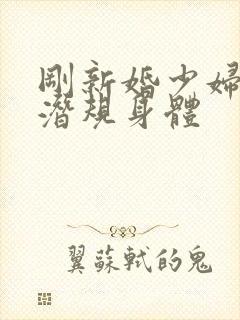 剛新婚少婦
潛規身體
翼蘇軾的鬼